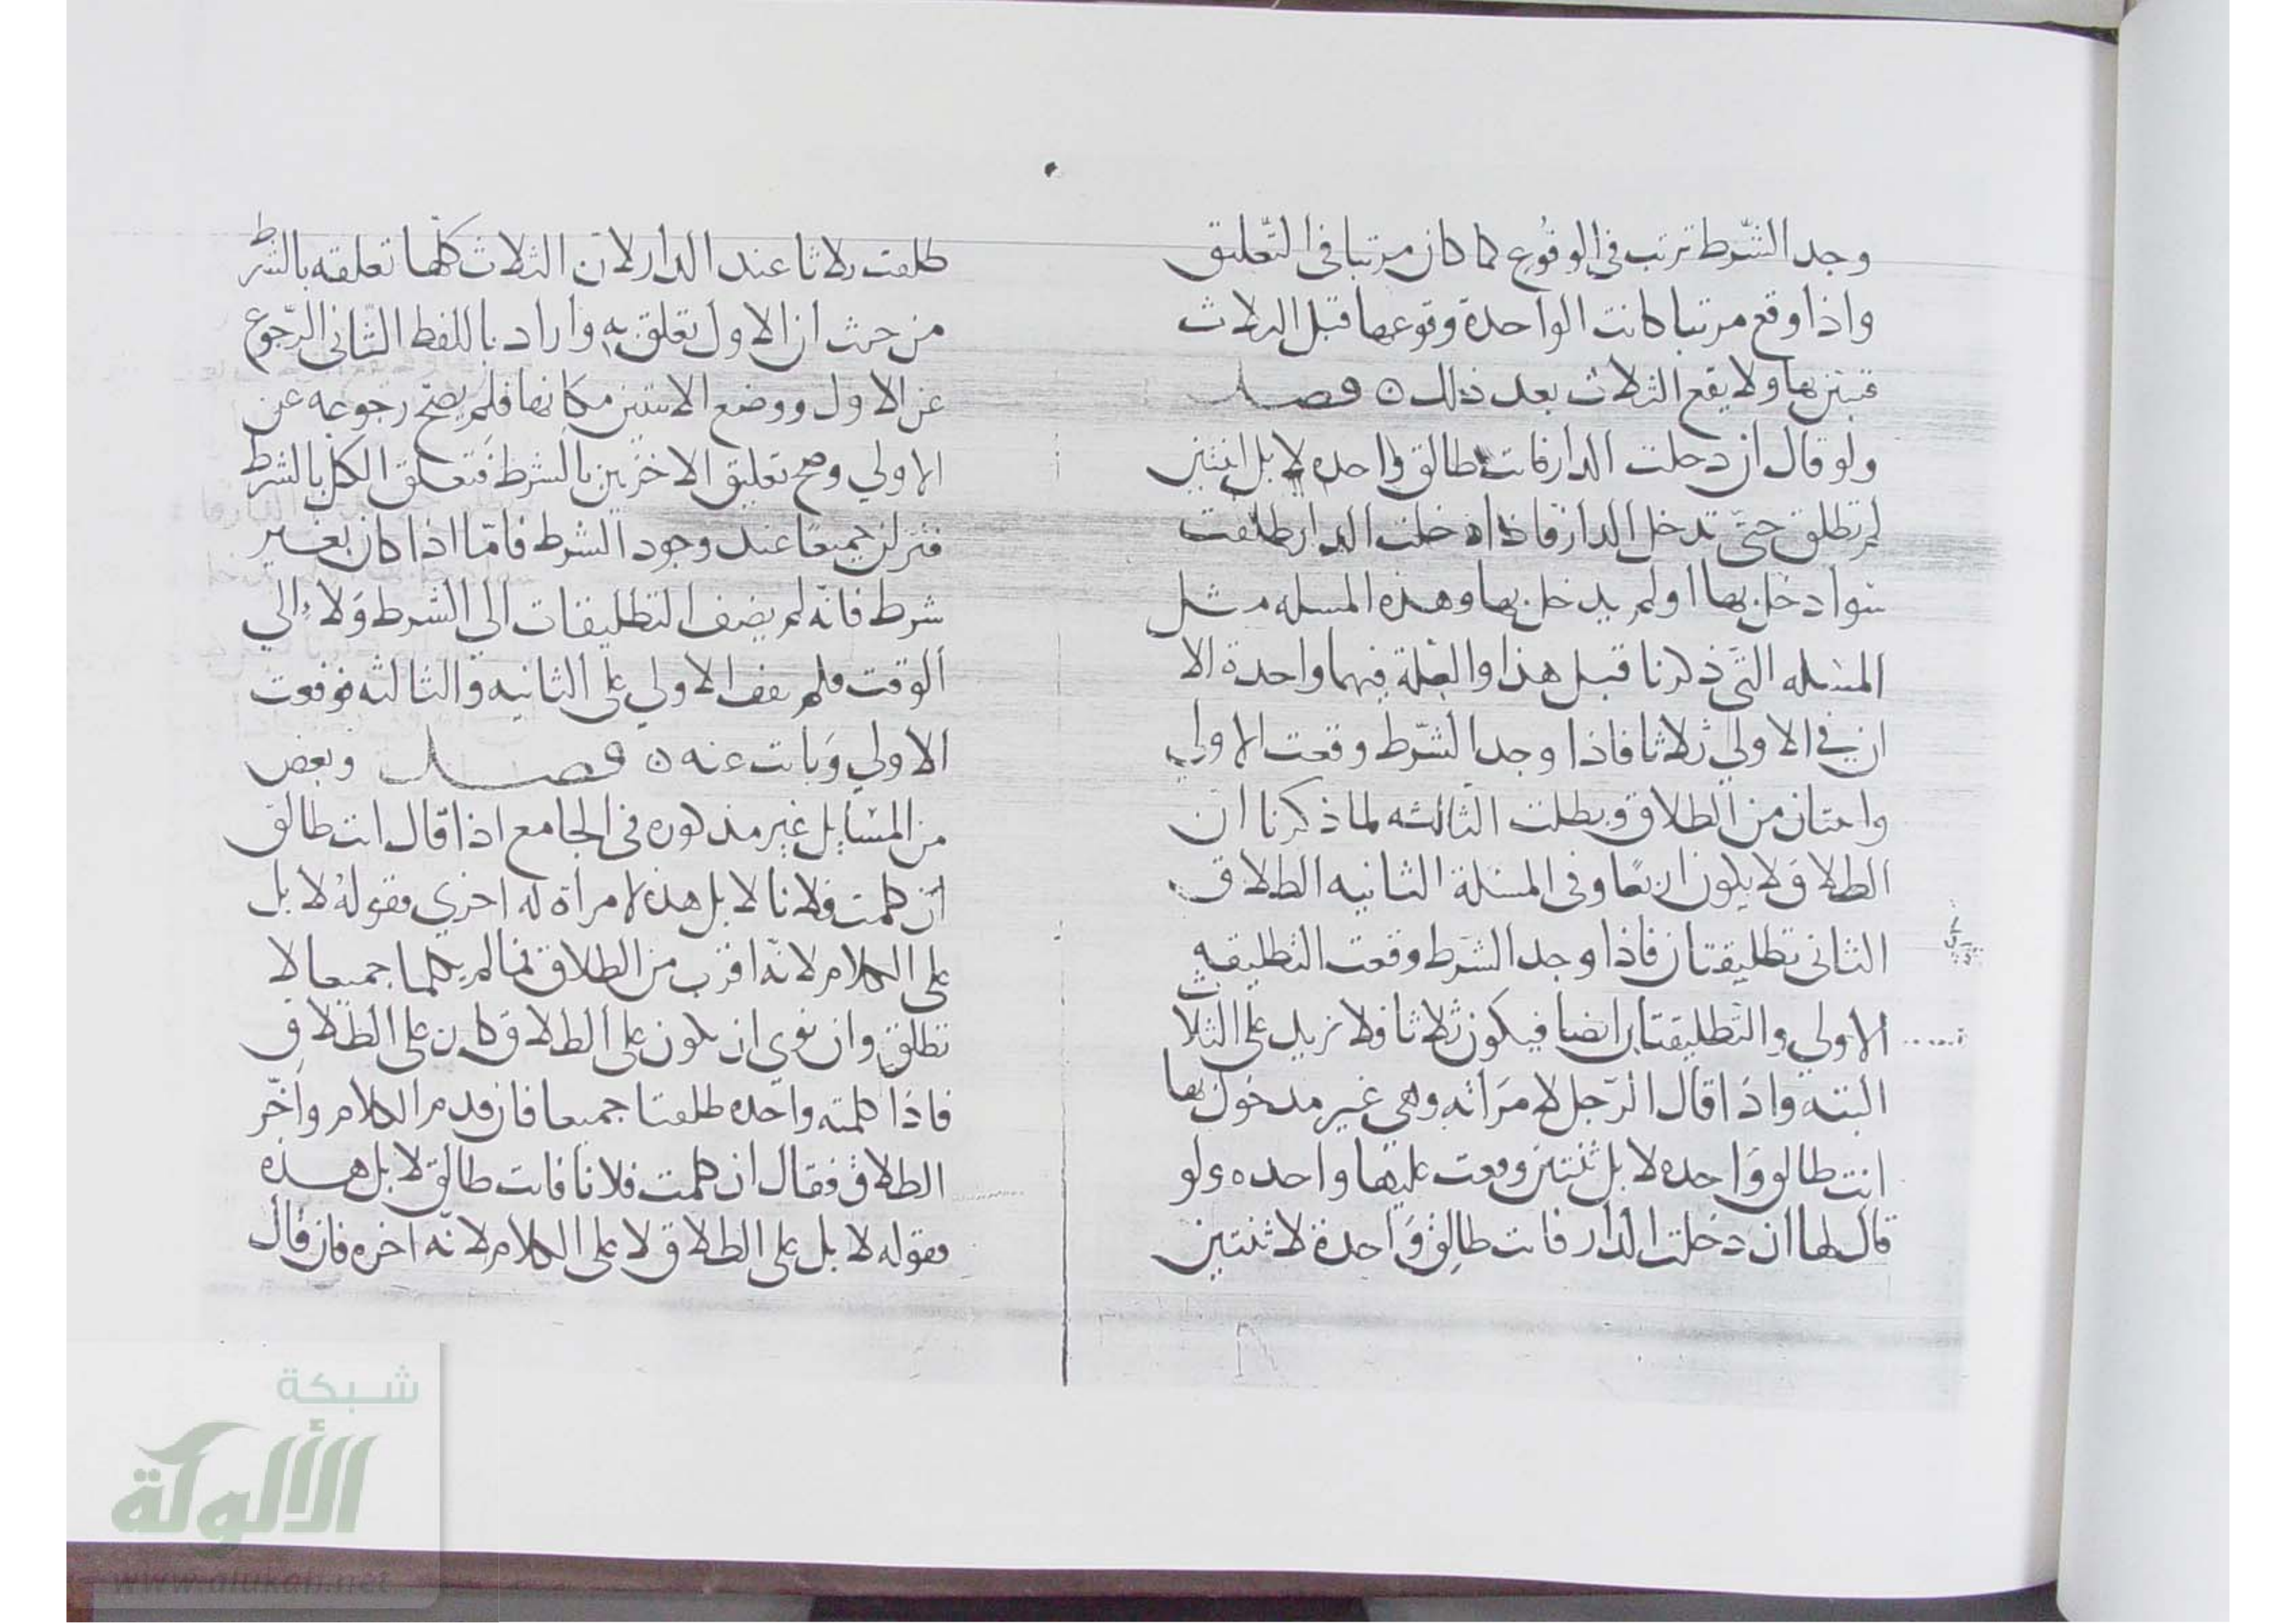 وجد الشّرط ترتب في الوقُوع كما كان مرتبا في التّعليق
واذا وقع مرتبا كانت الواحدة وقوعها قبل الثلاث
فتبين بها ولا يقع الثلاث بعد ذلك ٥ فصل
ولو قال ان دخلت الدار فانت طالق واحده لا بل اثنتين
لم تطلق حتّى تدخل الدار فاذا دخلت الدار طلقت
سوا دخل بها او لم يدخل بها وهذه المسله مثل
المسله التّي ذكرنا قبل هذا والعلة فيهما واحدة الا
ان في الاولي ثلاثا فاذا وجد الشّرط وقعت الاولي
واثنتان من الطلاق وبطلت الثالثه لما ذكرنا ان
الطلاق لا يكون اربعًا وفي المسئلة الثانيه الطلاق
الثاني تطليقتان فاذا وجد الشرط وقعت التطليقه
الاولي والتطليقتان ايضا فيكون ثلاثا فلا نزيد على الثلاث
البتة واذا قال الرّجل لامرَاته وهي غير مدخول بها
انت طالق وَاحده لا بل ثنتين وقعت عليها واحده ولو
قال لها ان دخلت الدار فانت طالِق وَاحدة لا ثنتين
طلقت ثلاثا عند الدار لان الثلاث كلّها تعلقه بالشرط
من حيث ان الاول تعلق به واراد باللفظ الثّاني الرّجوع
عن الاول ووضع الاثنتين مكانها فلم يصحّ رجوعه عن
الاولي وصح تعليق الاخريين بالشرط فَتعلق الكل بالشرط
فنزلن جميعًا عند وجود الشرط فامّا اذا كان بغير
شرط فانّه لم يضف التطليقات الي الشرط وَلا الي
الوقت فلم يقف الاولي على الثانيه والثالثه فوقعت
الاولي وَبانت عنه ٥ فصل وبعض
من المسَايل غير مذكوره في الجامع اذا قال انت طالق
ان كلمت فلانا لا بل هذه لامراة له اخري فقولهُ لا بل
على الكلام لانّه اقرب من الطلاق فما لم يكلما جميعا لا
تطلق وان نوي ان يكون على الطلاق كان على الطلاق
فاذا كلمته واحده طلقتا جميعا فان قدم الكلام واخّر
الطلاق فقال ان كلمت فلانا فانت طالق لا بل هذه
فقوله لا بل على الطلاق لا على الكلام لانّه اخره فان قال
شبكة
الألوكة
www.alukah.net